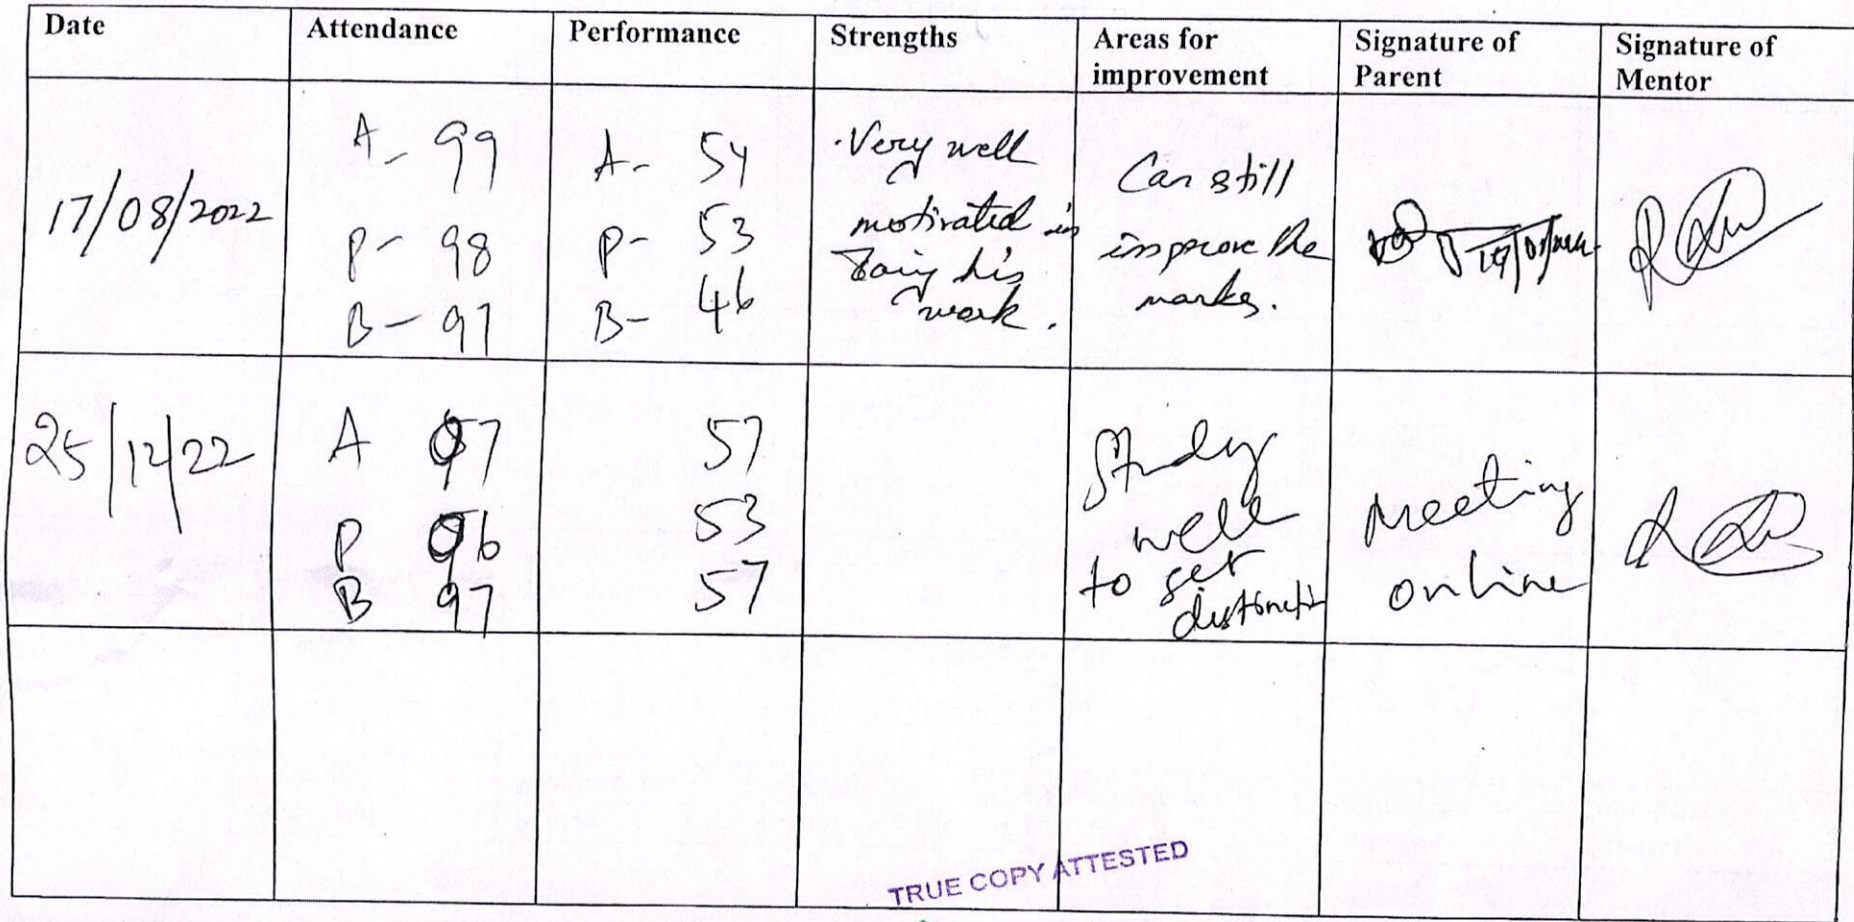 Date Attendance Performance Strengths Areas for improvement Signature of Parent Signature of Mentor
17/08/2022
A- 99
P- 98
B- 97
A- 54
P- 53
B- 46
Very well
motivated in
doing his
work.
Can still
improve the
marks.
25/12/22
A 97
P 96
B 97
57
53
57
Study
well
to get
distinctin
Meeting
online
TRUE COPY ATTESTED